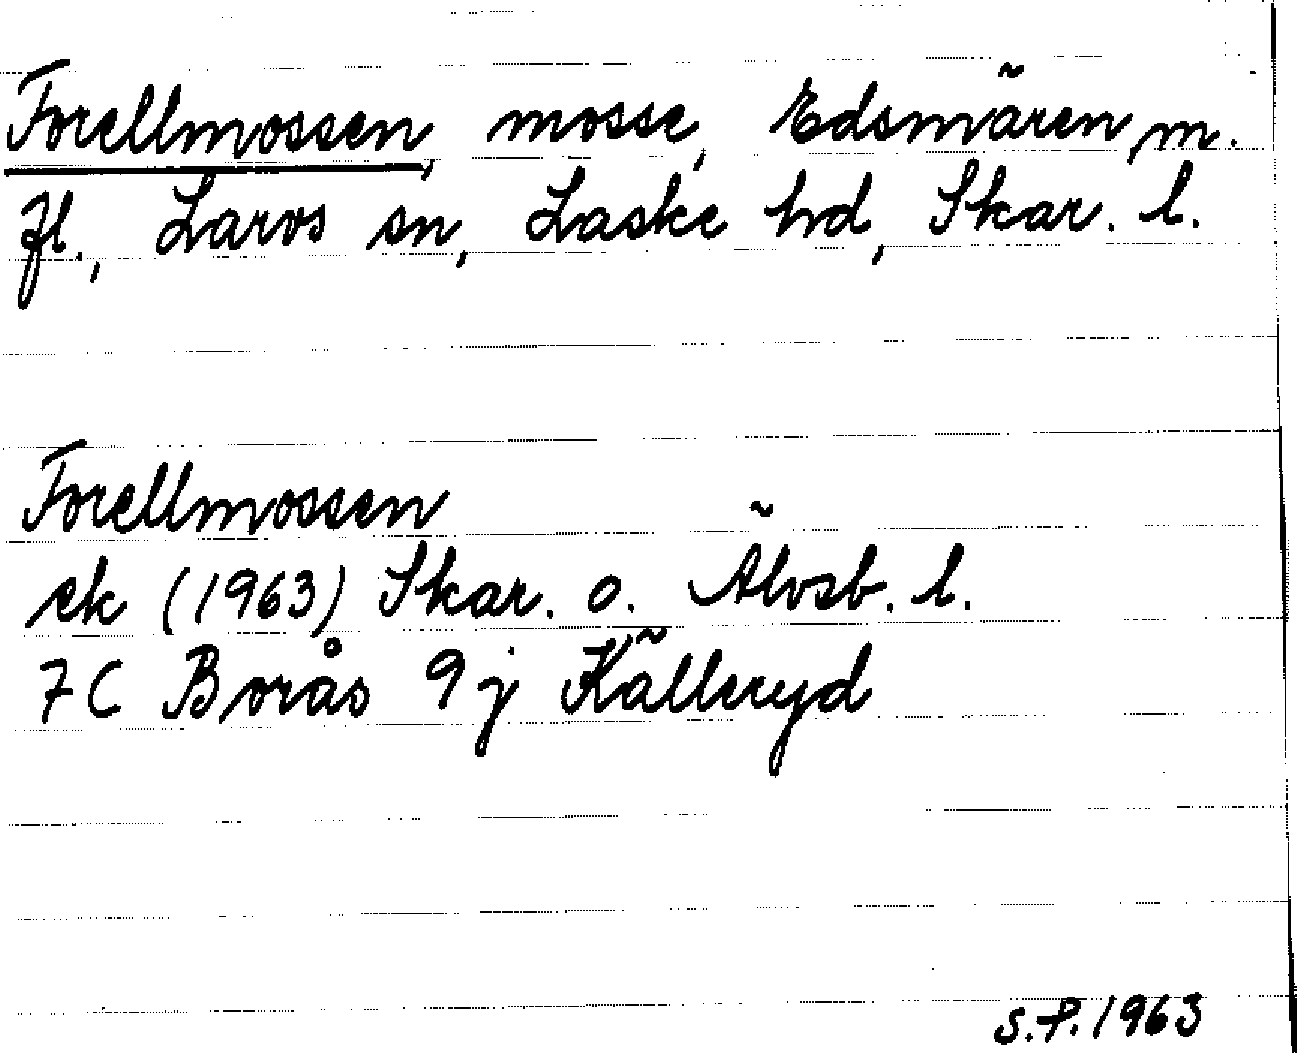 Forellmossen, mosse, Edsmären, m.
fl., Larvs sn, Laske hd, Skar. l.
Forellmossen
ek (1963) Skar. o. Älvsb. l.
7C Borås 9j Källeryd
S.P. 1963